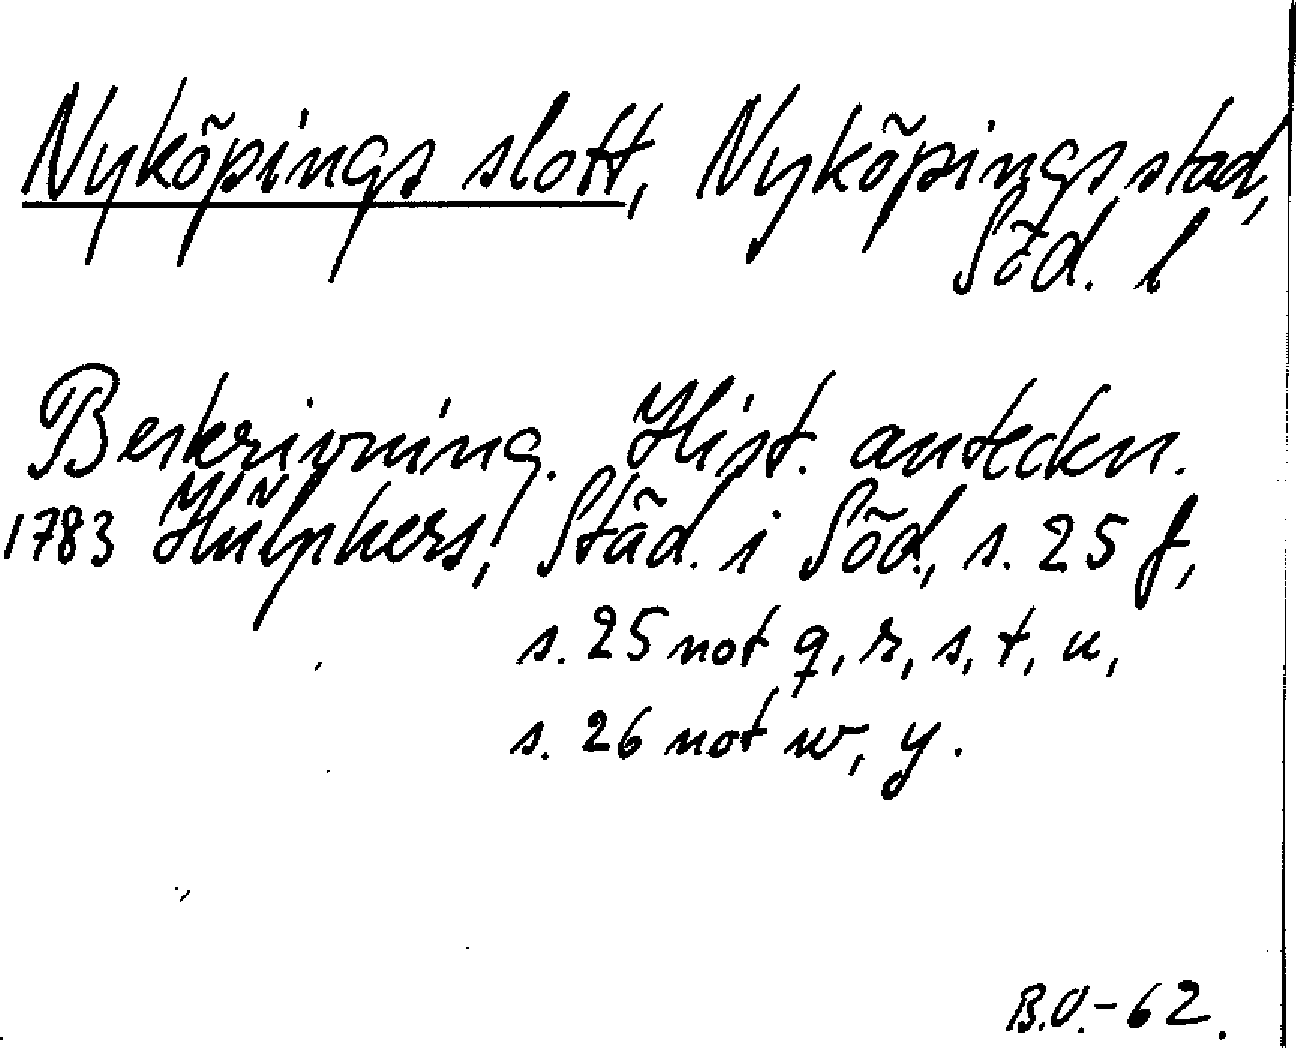 Nyköpings slott, Nyköpings stad,
Söd. l
Beskrivning. Hist. anteckn.
1783 Hülphers, Städ. i Söd., s. 25 f,
s. 25 not q, r, s, t, u,
s. 26 not w, y.
B.O.-62.